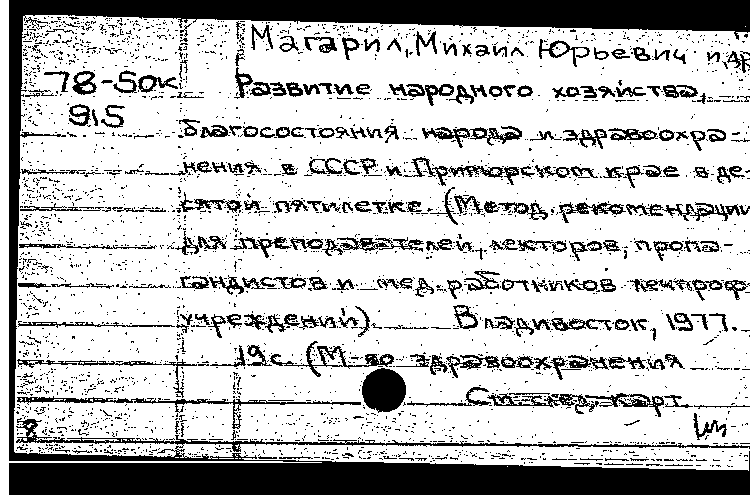 Магарил, Михаил Юрьевич и др
78-5ок
915
Развитие народного хозяйства,
благосостояния народа и здравоохра-
нения в СССР и Приморском крае в де-
сятой пятилетке. (Метод. рекомендации
для преподавателей, лекторов, пропа-
гандистов и мед. работников лечпроф
учреждений). Владивосток, 1977.
19 с. (М-во здравоохранения
См. след. карт.
8